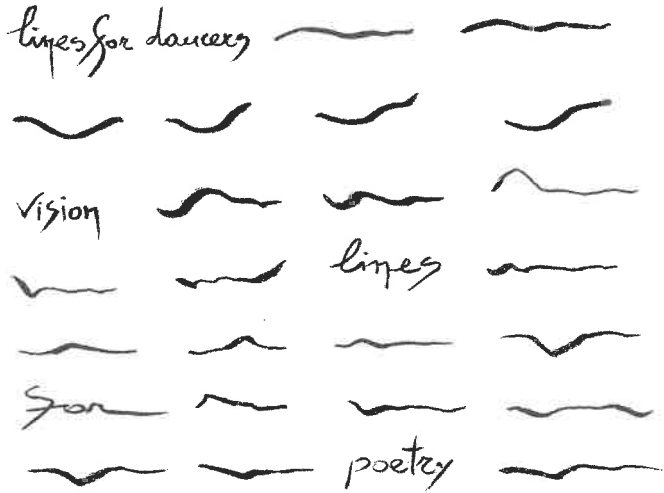 lines for dancers
vision
lines
for
poetry